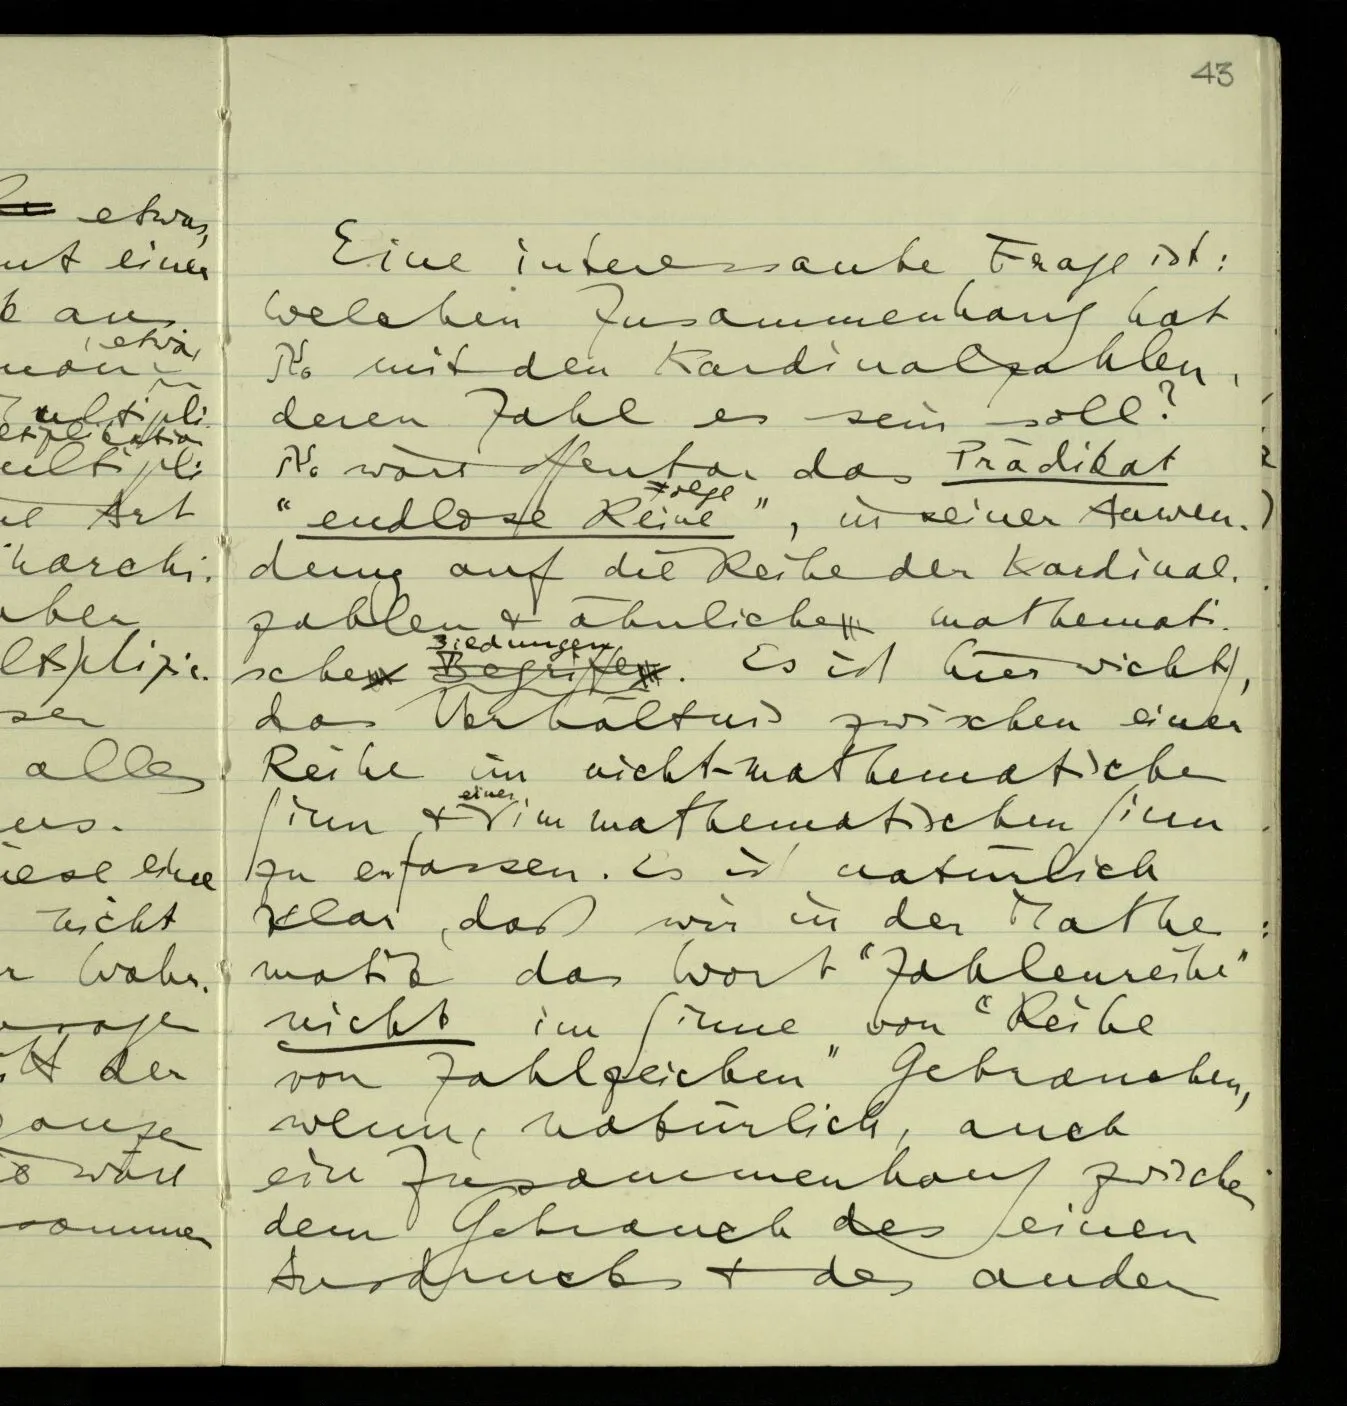 43
etwas,
einer
an
etwa,
Art
aber
alles
diese eine
nicht
der
wäre
Eine interessante Frage ist:
Welchen Zusammenhang hat
ℵ₀ mit den Kardinalzahlen,
deren Zahl es sein soll?
ℵ₀ wäre offenbar das Prädikat
Folge
“endlose Reihe”, in seiner Anwen-
dung auf die Reihe der Kardinal-
zahlen & ähnliche mathemati-
sche Begriffe. Es ist hier wichtig,
das Verhältnis zwischen einer
Reihe im nicht-mathematischen
einer
Sinn & im mathematischen Sinn
zu erfassen. Es ist natürlich
klar, daß wir in der Mathe
matik das Wort “Zahlenreihe”
nicht im Sinne von “Reihe
von Zahlzeichen” Gebrauchen,
wenn, natürlich, auch
ein Zusammenhang zwischen
dem Gebrauch des einen
Ausdrucks & des andern